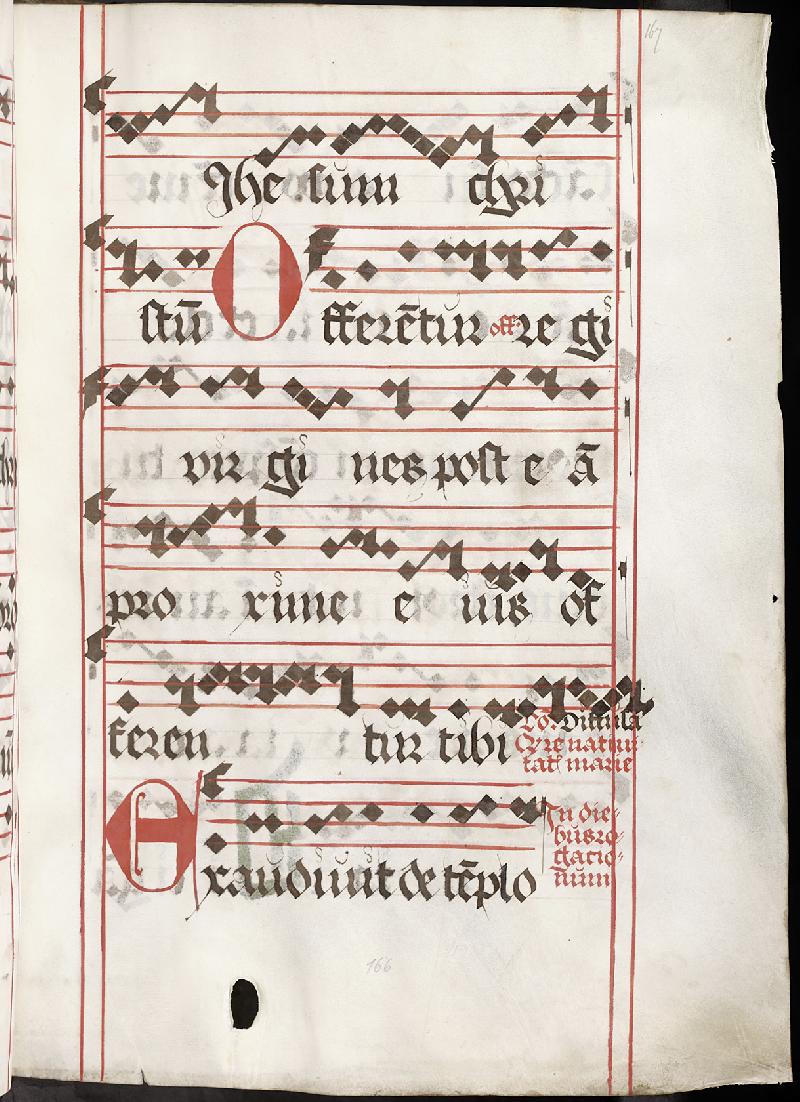 167
Jhe sum chri
stū Offerēt̄ur off re gi
vir gi nes post e ā
pro xime e ius of
feren tur tibi Co. Diffusa
E xaudiuit de tēplo In die
bus ro
gacio
num
166